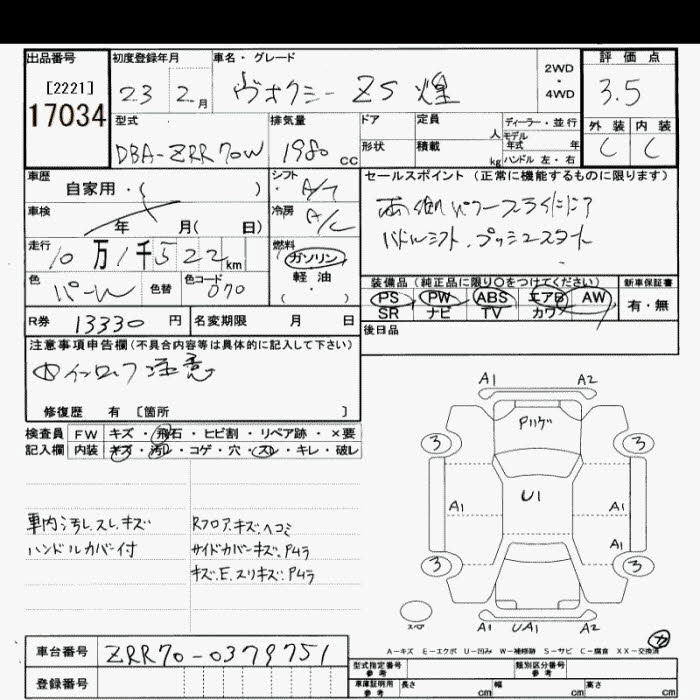 出品番号
[2221]
17034
初度登録年月
23 2月
車名・グレード
ヴォクシー ZS 煌
2WD
・
4WD
評価点
3.5
外装 内装
C C
型式
DBA-ZRR70W
排気量
1980 cc
ドア
形状
定員
人
積載
kg
ディーラー・並行
モデル
年式 年
ハンドル 左・右
車歴
自家用・( )
シフト
A/T
車検
年 月( 日)
冷房
A/C
走行
10万1千522km
燃料
ガソリン
軽・油
・( )
色
パール
色替
色コード
070
R券 13330 円
名変期限 月 日
セールスポイント(正常に機能するものに限ります)
両側パワースライドドア
パドルシフト.プッシュスタート
装備品(純正品に限り○をつけてください)
PS PW ABS エアB AW
SR ナビ TV カワ
新車保証書
有・無
後日品
注意事項申告欄(不具合内容等は具体的に記入して下さい)
注意
修復歴 有 [箇所 ]
検査員 FW キズ・飛石・ヒビ割・リペア跡・×要
記入欄 内装 キズ・汚レ・コゲ・穴・スレ・キレ・破レ
車内汚レ.スレ.キズ
ハンドルカバー付
Rフロア.キズ.ヘコミ
サイドカバーキズ.P4ラ
キズ.E.スリキズ.P4ラ
A1 A2
3 3
U1
A1 A1
A1
3 3
A1 UA1 A2
A-キズ E-エクボ U-凹み W-補修跡 S-サビ C-腐食 XX-交換済
車台番号 ZRR70-0379751
登録番号
型式指定番号
参考
類別区分番号
参考
車庫証明用
参考
長さ cm
幅 cm
高さ cm